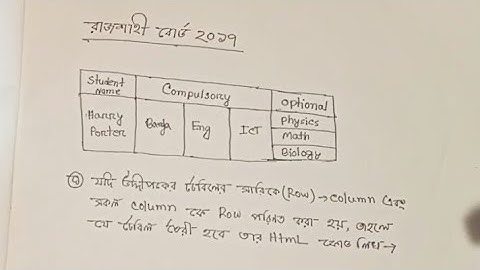 রাজশাহী বোর্ড ২০১৭
Student Name
Compulsory
Optional
Harry Porter
Bangla
Eng
ICT
Physics
Math
Biology
যদি উদ্দীপকের টেবিলের সারিকে (Row) → column এবং
সকল column কে Row পরিনত করা হয়, তাহলে
যে টেবিল তৈরী হবে তার Html কোড লিখ →